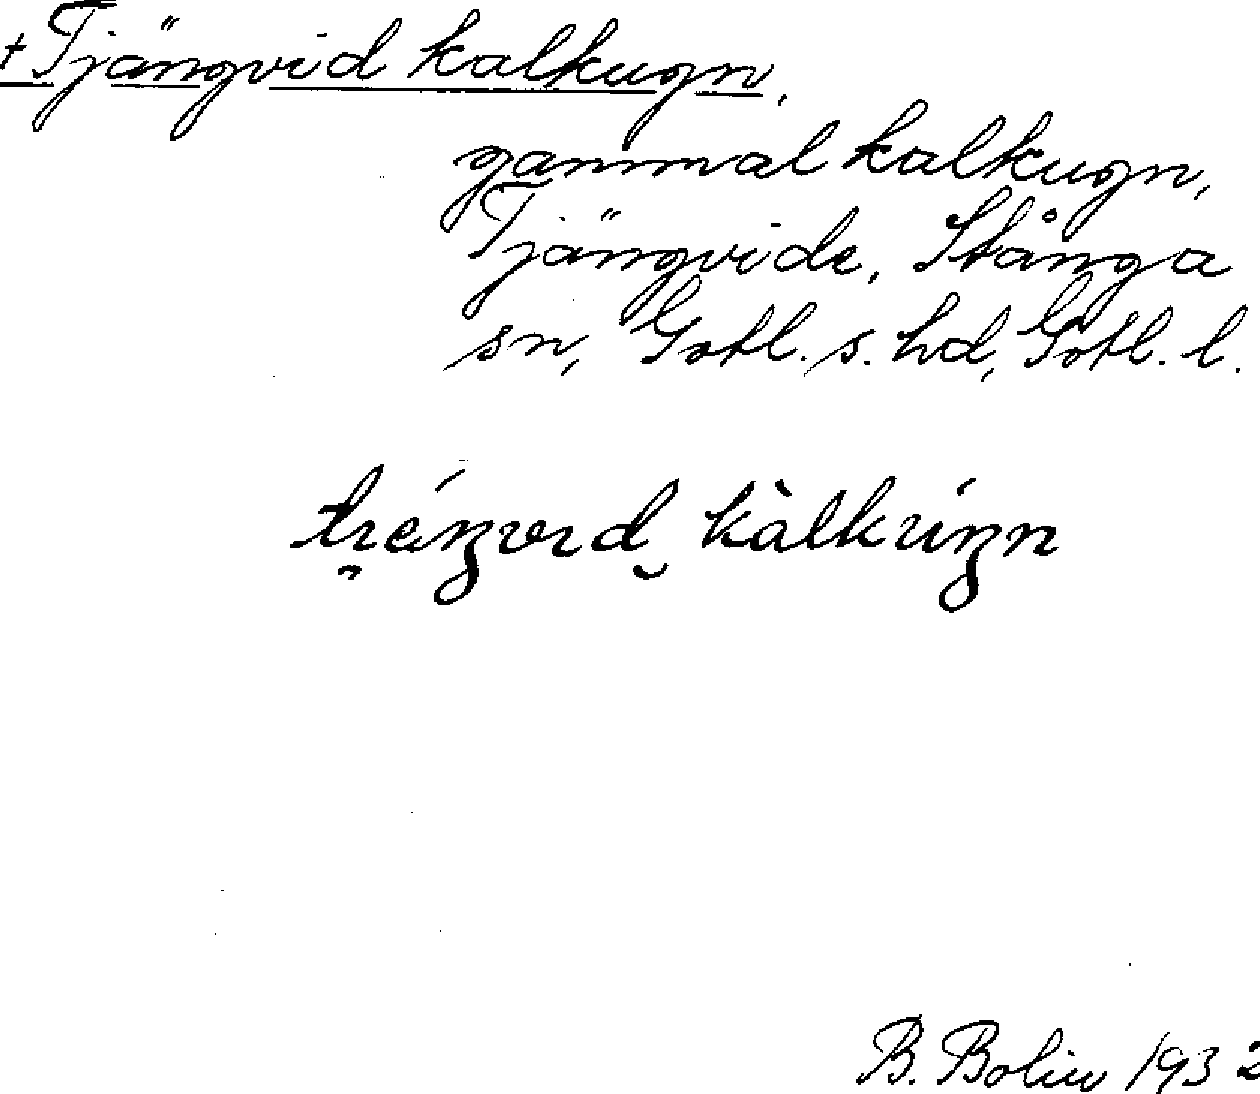 † Tjängvid kalkugn,
gammal kalkugn,
Tjängvide, Stånga
sn, Gotl. s. hd, Gotl. l.
B. Bolin 1932